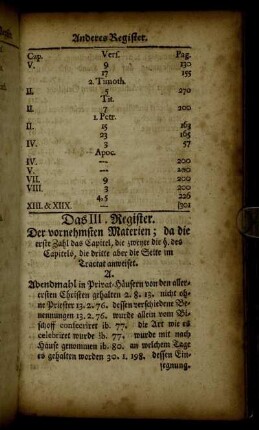 Anderes Register.
Cap. Vers. Pag.
V. 9 130
17 155
2. Timoth.
II. 5 270
Tit.
II. 7 200
1. Petr.
II. 15 163
23 165
IV. 3 57
Apoc.
IV. --- 200
V. --- 200
VII. 9 200
VIII. 3 200
4, 5 226
XIII. & XIIX. ---
Das III. Register.
Der vornehmsten Materien; da die
erste Zahl das Capitel, die zweyte die §. des
Capitels, die dritte aber die Seite im
Tractat anweiset.
A.
Abendmahl in Privat-Häusern von den aller-
ersten Christen gehalten 2. 8. 13. nicht oh-
ne Priester 13. 2. 76. dessen verschiedene Be-
nennungen 13. 2. 76. wurde allein vom Bi-
schoff consecriret ib. 77. die Art wie es
celebriret wurde ib. 77. wurde mit nach
Hause genommen ib. 80. an welchem Tage
es gehalten worden 30. 1. 198. dessen Ein-
segnung.